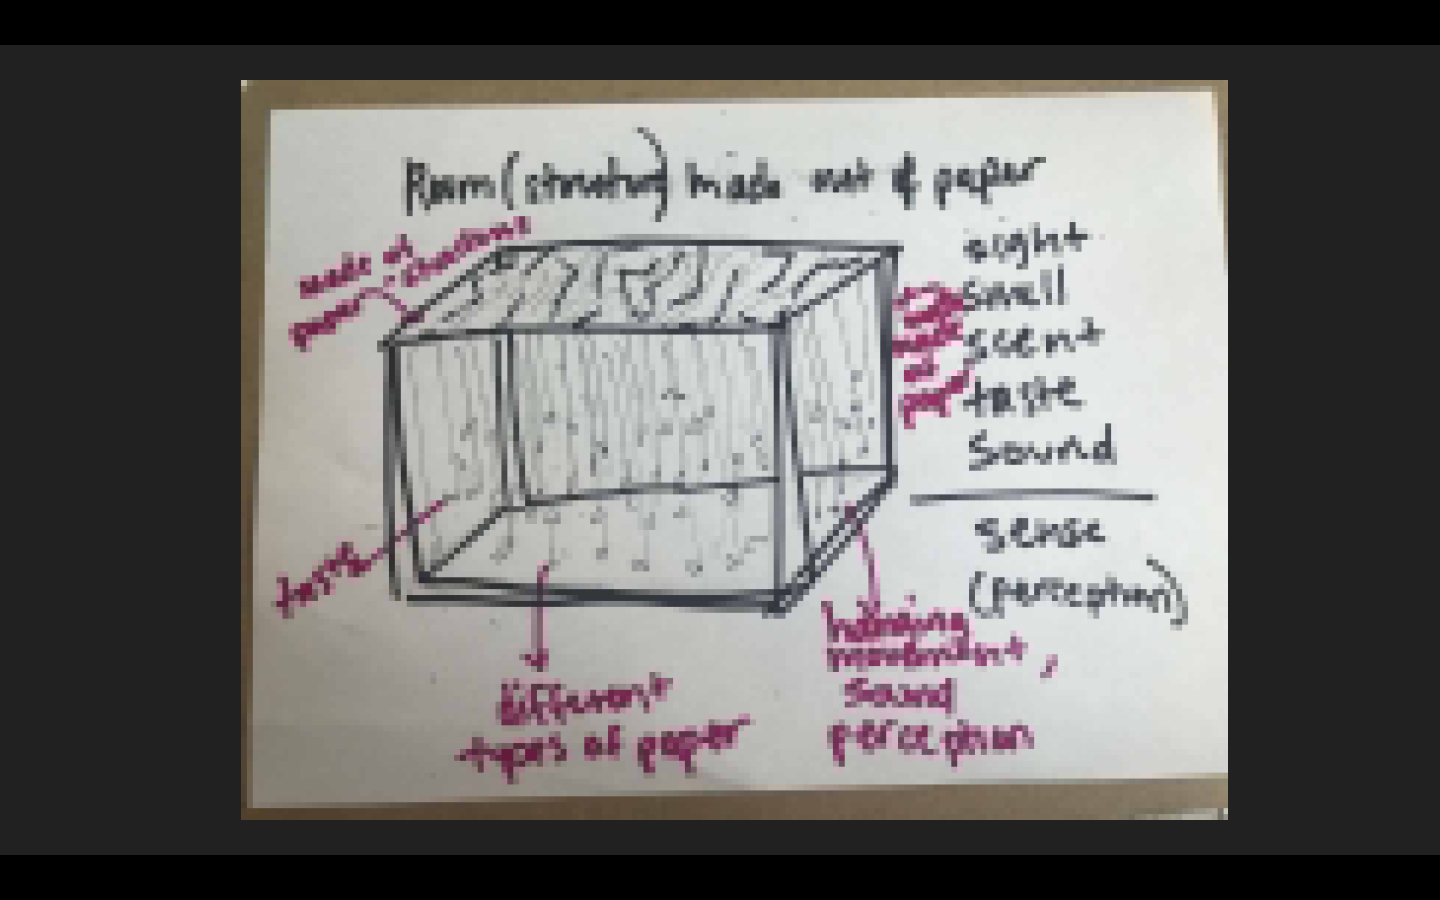 Room (structure) made out of paper
made of
paper · shadows
sight
smell
scent
taste
sound
made
of
paper
sense
(perception)
taste
different
types of paper
hanging
movement,
sound
perception